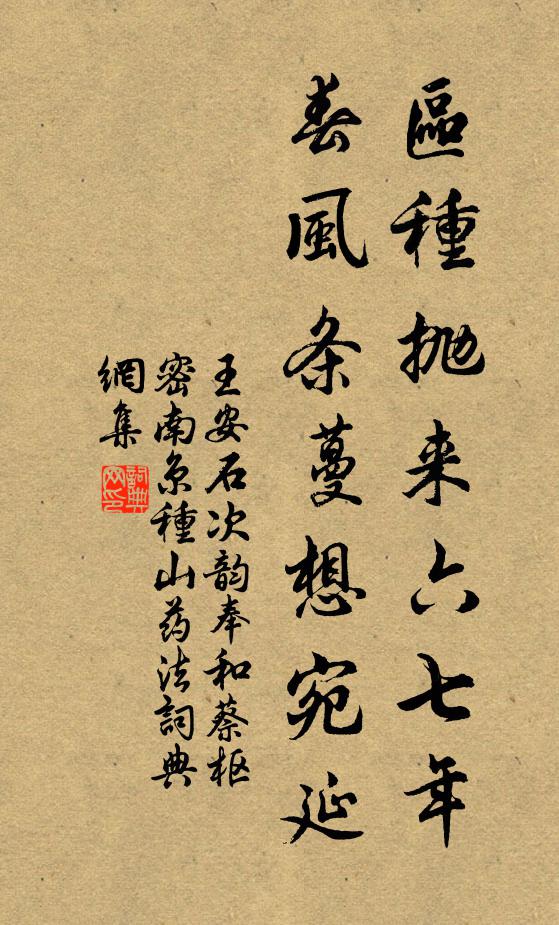 區種抛来六七年
春風条蔓想宛延
王安石次韵奉和蔡枢
密南京種山药法詞典
網集
詞典网印